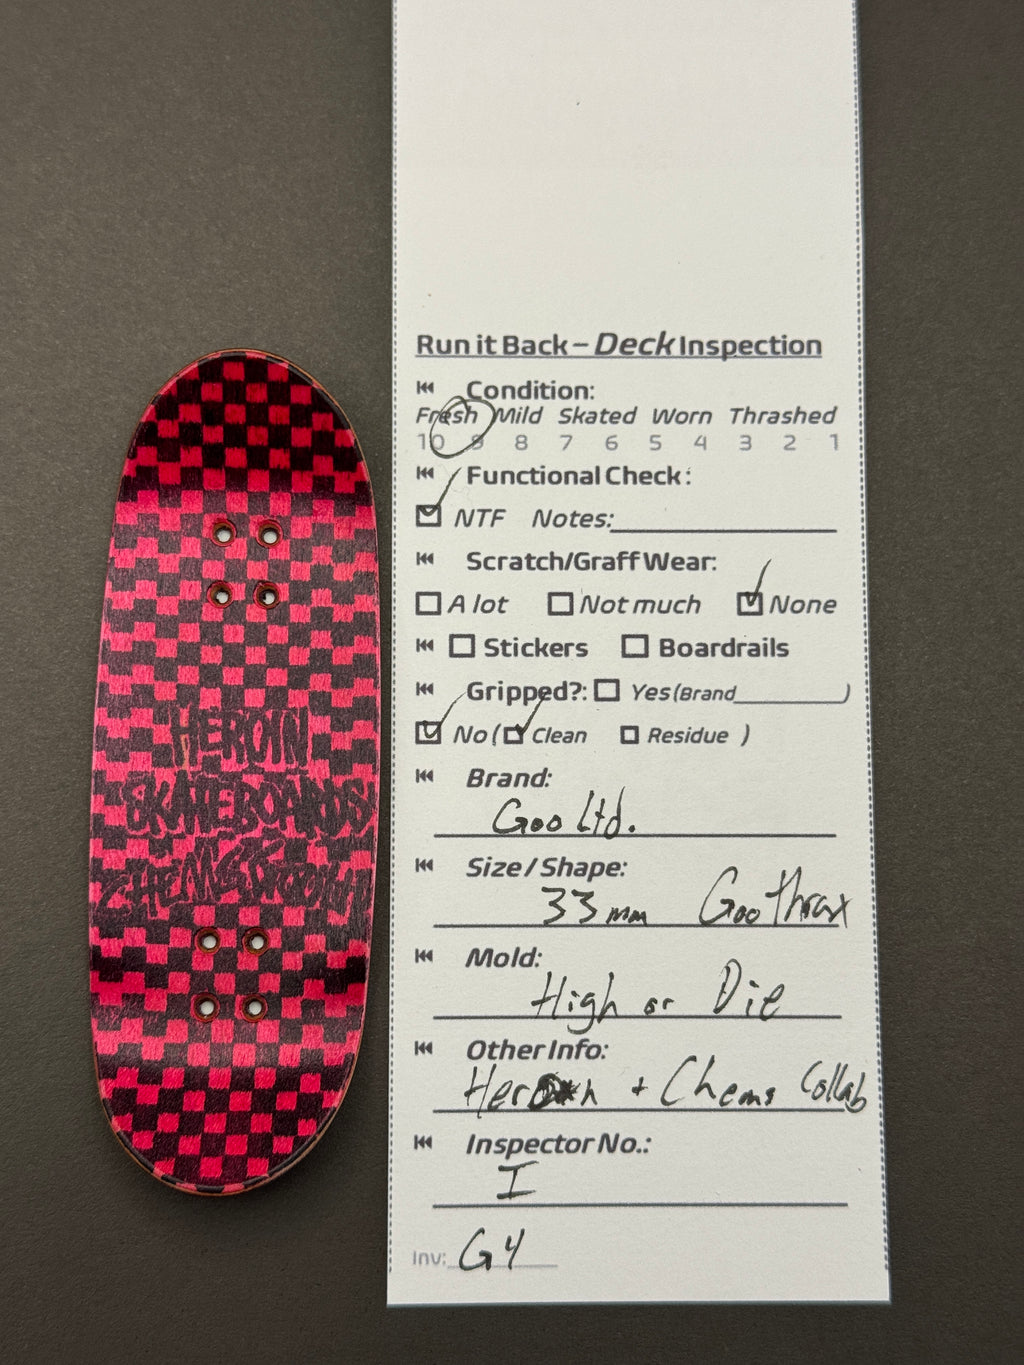 HEROIN
SKATEBOARDS
Run it Back – Deck Inspection
Condition:
Fresh Mild Skated Worn Thrashed
10 9 8 7 6 5 4 3 2 1
Functional Check:
NTF Notes:
Scratch/Graff Wear:
A lot Not much None
Stickers Boardrails
Gripped?: Yes (Brand )
No ( Clean Residue )
Brand:
Goo Ltd.
Size / Shape:
33mm Goothrax
Mold:
High or Die
Other Info:
+ Chems Collab
Inspector No.:
I
Inv: G4